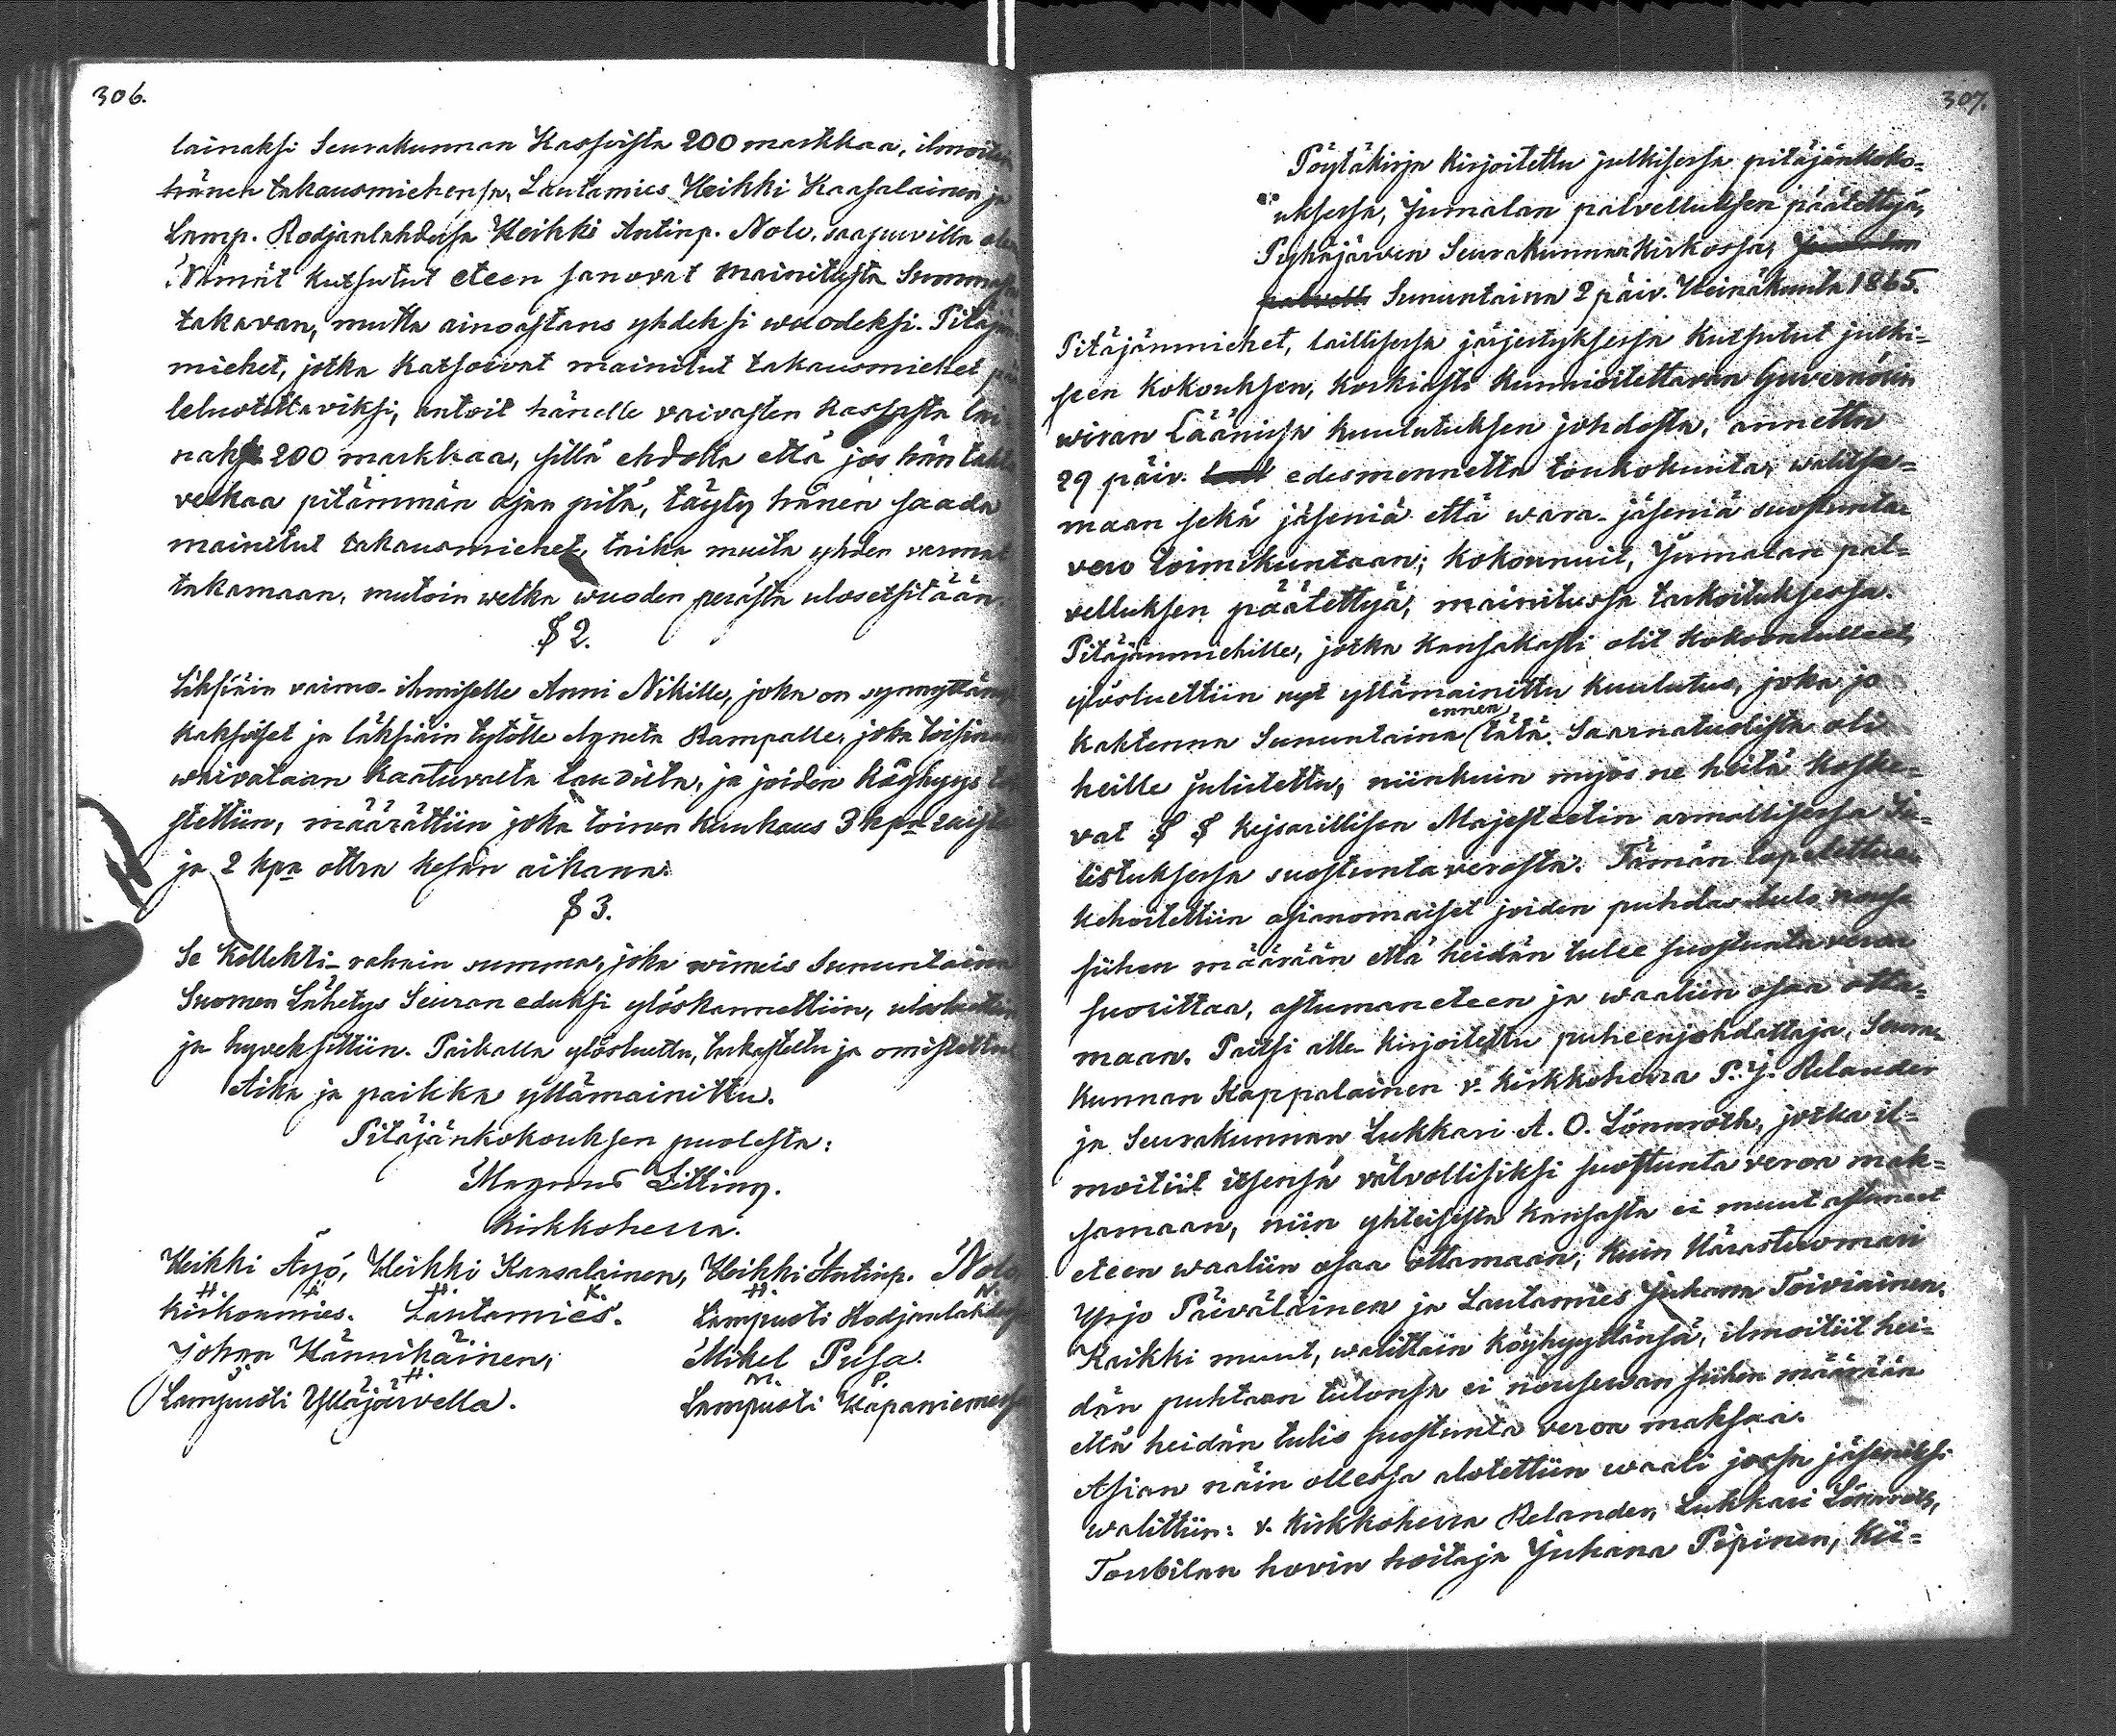 306.
lainaksi Seurakunnan Kassoista 200 markkaa, ilmoitti
hänen takausmiehensä, Lautamies Heikki Kaasalainen ja
Lamp. Rodjanlahdessa Heikki Antinp. Nolo, saapuvilla
Nämät kutsutut eteen sanovat mainitusta Summasta
takavan, mutta ainoastans yhdeksi wuodeksi. Pitäjän
miehet, jotka katsoivat mainitut takausmiehet
luotettaviksi, antoit hänelle vaivasten kassasta lai-
naksi 200 markkaa, sillä ehdolla että jos hän tahto
velkaa pitämmän ajan pitä, täyty hänen saada
mainitut takausmiehet, taika muita yhden varmat
takamaan, mutoin welka wuoden perästä ulosetsitään.
§ 2.
Itksiäin vaimo-ihmiselle Anni Nikille, joka on synnyttänyt
kaksoiset ja läksiäin tytölle Agneta Rampalle, joka toisinan
waivataan kaatuvalta taudilta, ja joiden köyhyys to-
stettiin, määrättiin joka toinen kuukaus 3 kpa ruista
ja 2 kpa ottra kesän aikana.
§ 3.
Se Kollekti-rahain summa, joka wimeis Sununtaina
Suomen Lähetys Seuran eduksi ylöskannettiin, uloslue
ja hyveksittiin. Paikalla ylösluettu, tarkastettu ja
Aika ja paikka yllämainittu.
Pitäjänkokouksen puolesta:
Magnus Litting.
Kirkkoherra.
Heikki Äyjö, Heikki Kaasalainen, Heikki Antinp. Nolo,
H. Ä. H. K. H. N.
Kirkonmies. Lautamies. Lampuoti Rodjanlahdessa
Johan Hännikäinen, Mikel Pusa.
J. H. M. P.
Lampuoti Ylläjärvellä. Lampuoti Hapaniemessä
307.
Pöytäkirja kirjoitettu julkisessa pitäjänkoko-
uksessa, Jumalan palvelluksen päätettyä,
Pyhäjärven Seurakunnan kirkossa, Jumalan
palvell Sununtaina 2 päiv. Heinäkuuta 1865.
Pitäjänmiehet, laillisessa järjestyksessä kutsutut julki-
seen kokouksen, korkiasti kunnioitettavan Guvernörin
wiran Läänissä kuulutuksen johdosta, annettu
29 päiv. edesmennettä toukokuuta, walitse-
maan sekä jäseniä että wara-jäseniä suostunta-
vero toimikuntaan; kokounnuit, Jumalan pal-
velluksen päätettyä, mainitussa tarkoituksessa.
Pitäjänmiehille, jotka kansakasti olit kokoontulleet,
ylösluettiin nyt yllämainittu kuulutus, joka jo
kahtenna Sununtaina ennen tätä Saarnatuolista oli
heille julistettu, niinkuin myös ne heitä koske-
vat § § Kejsarillisen Majestetin armollisessa Ju-
listuksessa suostuntaverosta. Tämän lopetettua
kehoitettiin asianomaiset joiden puhdas tulo nousee
siihen määrään että heidän tulee suostunta veroa
suorittaa, astuman eteen ja waaliin osaa otta-
maan. Paitsi alle-kirjoitettu puheenjohdattaja, Seura-
kunnan Kappalainen v. kirkkoherra P. J. Relander
ja Seurakunnan Lukkari A. O. Lönnroth, jotka il-
moitiit itsensä velvollisiksi suostunta veroa mak-
samaan, niin yhteisestä kansasta ei muut astuneet
eteen waaliin osaa ottamaan, kuin Härastuomari
Yrjö Päiväläinen ja Lautamies Juhana Toiviainen.
Kaikki muut, walittain köyhyyttänsä, ilmoitiit hei-
dän puhtaan tulonsa ei nousewan siihen määrään
että heidän tulis suostunta veroa maksaa.
Asian näin ollessa alotettiin waali jossa jäseniksi
walittiin: v. kirkkoherra Relander, Lukkari Lönnroth,
Toubilan hovin hoitaja Juhana Pipinen, Kii-